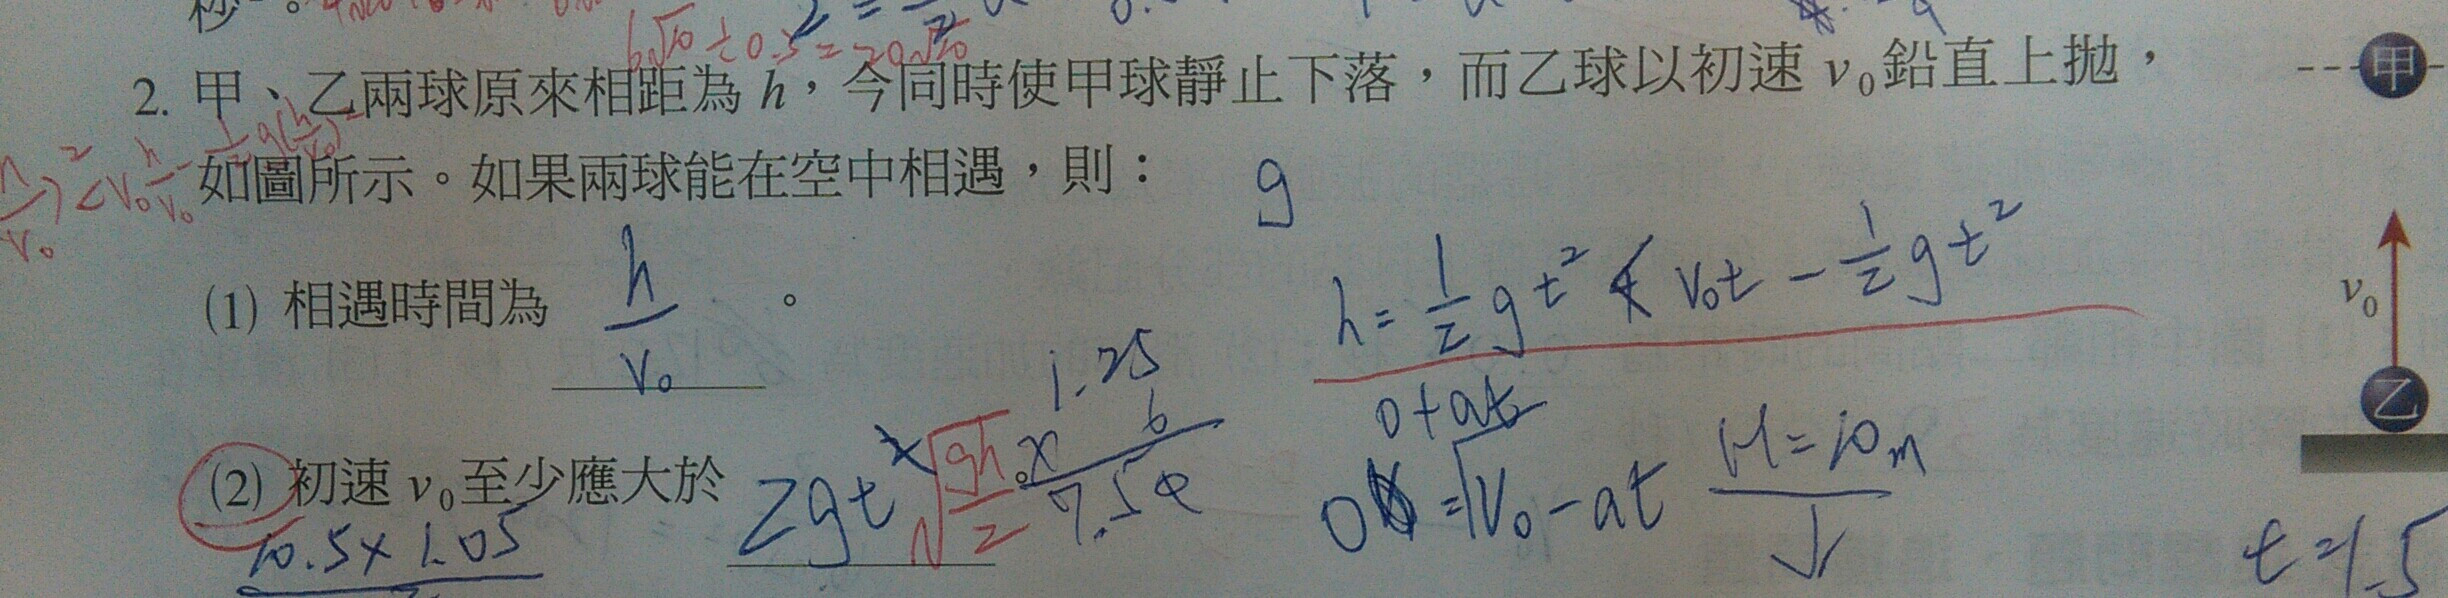 6√10 ÷ 0.3 = 20√10
2. 甲、乙兩球原來相距為 h，今同時使甲球靜止下落，而乙球以初速 v₀ 鉛直上拋，
甲
如圖所示。如果兩球能在空中相遇，則：
g
(1) 相遇時間為 h/v₀ 。
h = 1/2 gt² + v₀t - 1/2 gt²
v₀
乙
1.25
6
7.50
0+at
(2) 初速 v₀ 至少應大於 2gt √(gh/2) 。
0 = v₀ - at
H = 10m
t = 1.5
10.5 × 1.05